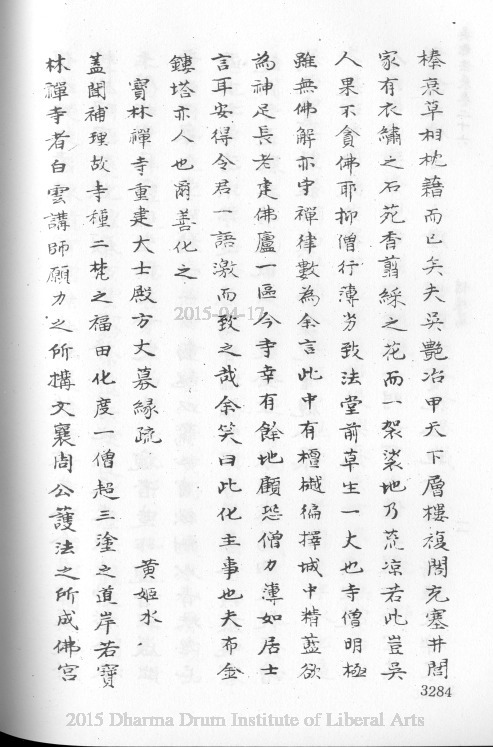 榛衰草相枕籍而已矣夫吳艷冶甲天下層樓複閣充塞井閭
家有衣繡之石苑香翦綵之花而一袈裟地乃荒凉若此豈吳
人果不貪佛耶抑僧行薄劣致法堂前草生一丈也寺僧明極
雖無佛解亦守禪律數為余言此中有檀樾徧擇城中精藍欲
為神足長老建佛廬一區今寺幸有餘地顧恐僧力薄如居士
言耳安得令君一語激而致之哉余笑曰此化主事也夫布金
鏤塔亦人也爾善化之
寶林禪寺重建大士殿方丈募緣疏 黃姬水
蓋聞補理故寺種二梵之福田化度一僧超三塗之道岸若寶
林禪寺者白雲講師願力之所搆文襄周公護法之所成佛宮
3284
2015-04-17
2015 Dharma Drum Institute of Liberal Arts